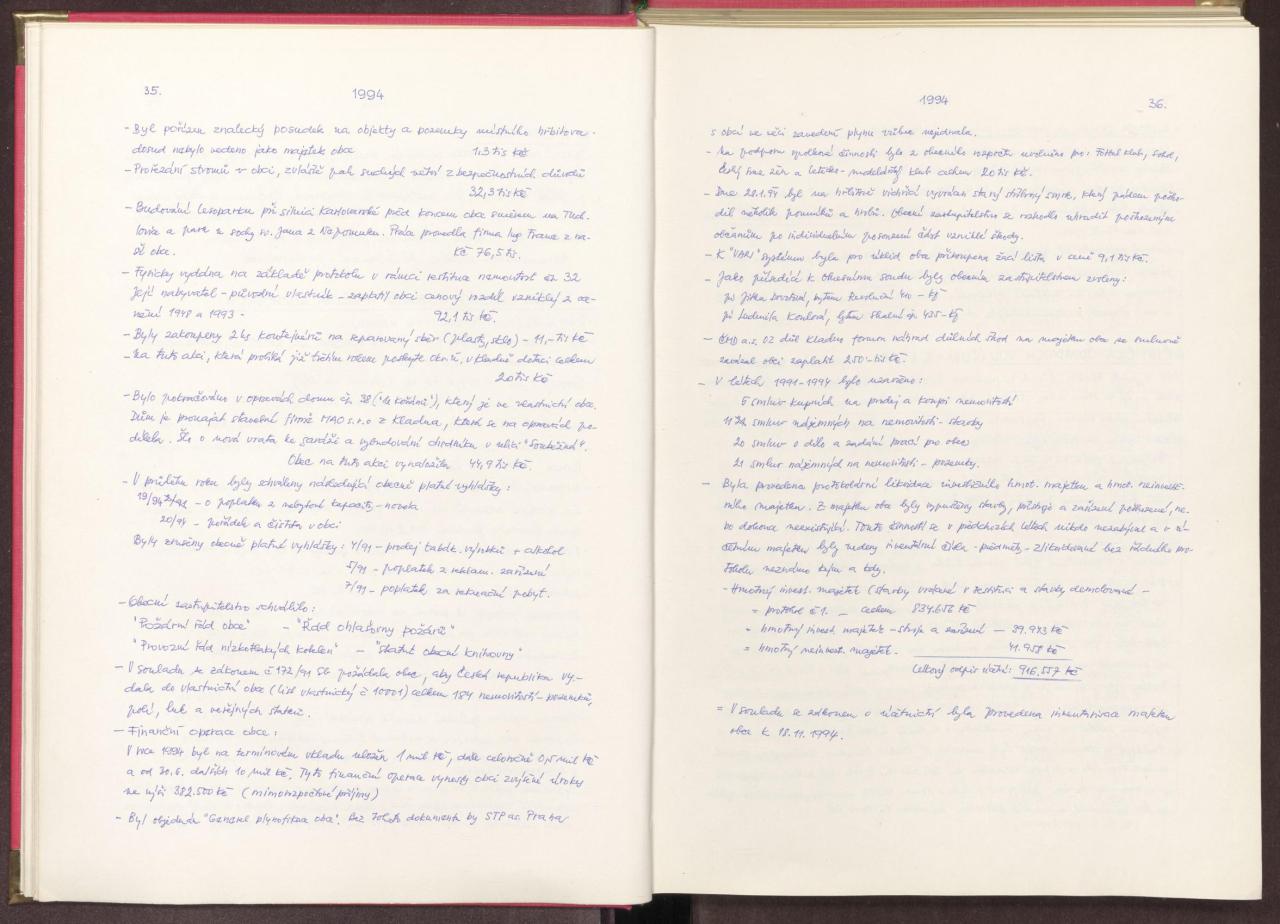 35.
1994
- Byl pořízen znalecký posudek na objekty a pozemky místního hřbitova.
dosud nebylo vedeno jako majetek obce 1,3 tis Kč
- Prořezání stromů v obci, zvláště pak suchých větví z bezpečnostních důvodů
32,3 tis Kč
- Budování lesoparku při silnici Karlovarské před koncem obce směrem na Tuch-
lovice a parc u sochy sv. Jana z Nepomuku. Práce provedla firma Ing Franc z na-
ší obce. Kč 76,5 tis.
- Fyzicky vydána na základě protokolu v rámci restituce nemovitost čp. 32
Její nabyvatel - původní vlastník - zaplatil obci cenový rozdíl vzniklý z oce-
nění 1948 a 1993 - 92,1 tis Kč.
- Byly zakoupeny 2 ks kontejnerů na separovaný sběr (plasty, sklo) - 11,- tis Kč
- Na tuto akci, která probíhá již třetím rokem poskytl okr. ú. v Kladně dotaci celkem
20 tis Kč
- Bylo pokračováno v opravách domu čp. 38 ("U Kořánů"), který je ve vlastnictví obce.
Dům je pronajat stavební firmě MAO s.r.o z Kladna, která se na opravách po-
dílela. Šlo o nová vrata ke garáži a vybudování chodníku v ulici "Souběžná".
Obec na tuto akci vynaložila 44,9 tis Kč.
- V průběhu roku byly schváleny následující obecně platné vyhlášky:
19/94 - o poplatku z nebytové kapacity - novela
20/94 - pořádek a čistota v obci
Byly zrušeny obecně platné vyhlášky: 4/91 - prodej tabák. výrobků + alkohol
5/91 - poplatek z reklam. zařízení
7/91 - poplatek za rekreační pobyt.
- Obecní zastupitelstvo schválilo:
"Požární řád obce" - "Řád ohlašovny požárů"
"Provozní řád nízkotlakých kotelen" - "Statut obecní knihovny"
- V souladu se zákonem č 172/91 Sb požádala obec, aby Česká republika vy-
dala do vlastnictví obce (list vlastnický č 10001) celkem 184 nemovitostí - pozemků,
polí, luk a veřejných statků.
- Finanční operace obce:
V roce 1994 byl na termínovém vkladu uložen 1 mil Kč, dále celoročně 0,5 mil Kč
a od 30.6. dalších 10 mil Kč. Tyto finanční operace vynesly obci zvýšené úroky
ve výši 382.500 Kč (mimorozpočtové příjmy)
- Byl objednán "Generel plynofikace obce". Bez tohoto dokumentu by STP as. Praha
1994
36.
s obcí ve věci zavedení plynu vůbec nejednala.
- Na podporu spolkové činnosti bylo z obecního rozpočtu uvolněno pro: Fotbal klub, Sokol,
Český svaz žen a letecko-modelářský klub celkem 20 tis Kč.
- Dne 28.1.94 byl na hřbitově vichřicí vyvrácen starý stříbrný smrk, který pádem poško-
dil několik pomníků a hrobů. Obecní zastupitelstvo se rozhodlo uhradit poškozeným
občanům po individuálním posouzení část vzniklé škody.
- K "VARI" systému byla pro úklid obce přikoupena žací lišta v ceně 9,1 tis Kč.
- Jako přísedící k Okresnímu soudu byly obecním zastupitelstvem zvoleny:
pí Jitka bytem Revoluční
pí Ludmila bytem Skalní čp. 425 - Kž
- ČMD a.s. OZ důl Kladno formou náhrad důlních škod na majetku obce se smluvně
zavázal obci zaplatit 250.- tis Kč.
- V létech 1991-1994 bylo uzavřeno:
5 smluv kupních na prodej a koupi nemovitostí
11 smluv nájemných na nemovitosti - stavby
20 smluv o dílo a zadání prací pro obec
21 smluv nájemných na nemovitosti - pozemky.
- Byla provedena protokolární likvidace investičního hmot. majetku a hmot. neinvesti-
čního majetku. Z majetku obce byly vypuštěny stavby, přístroje a zařízení poškozené, ne-
bo dokonce neexistující. Touto činností se v předchozích létech nikdo nezabýval a v ú-
četním majetku byly vedeny inventární čísla - předměty - zlikvidované bez řádného pro-
tokolu neznámo kým a kdy.
- Hmotný invest. majetek (stavby vrácené v restituci a stavby demolované -
= protokol č 1. - celkem 834.656 Kč
= hmotný invest. majetek - stroje a zařízení - 39.943 Kč
= hmotný neinvest. majetek. 41.958 Kč
Celkový odpis účetní: 916.557 Kč
= V souladu se zákonem o účetnictví byla provedena inventarizace majetku
obce k 18.11.1994.